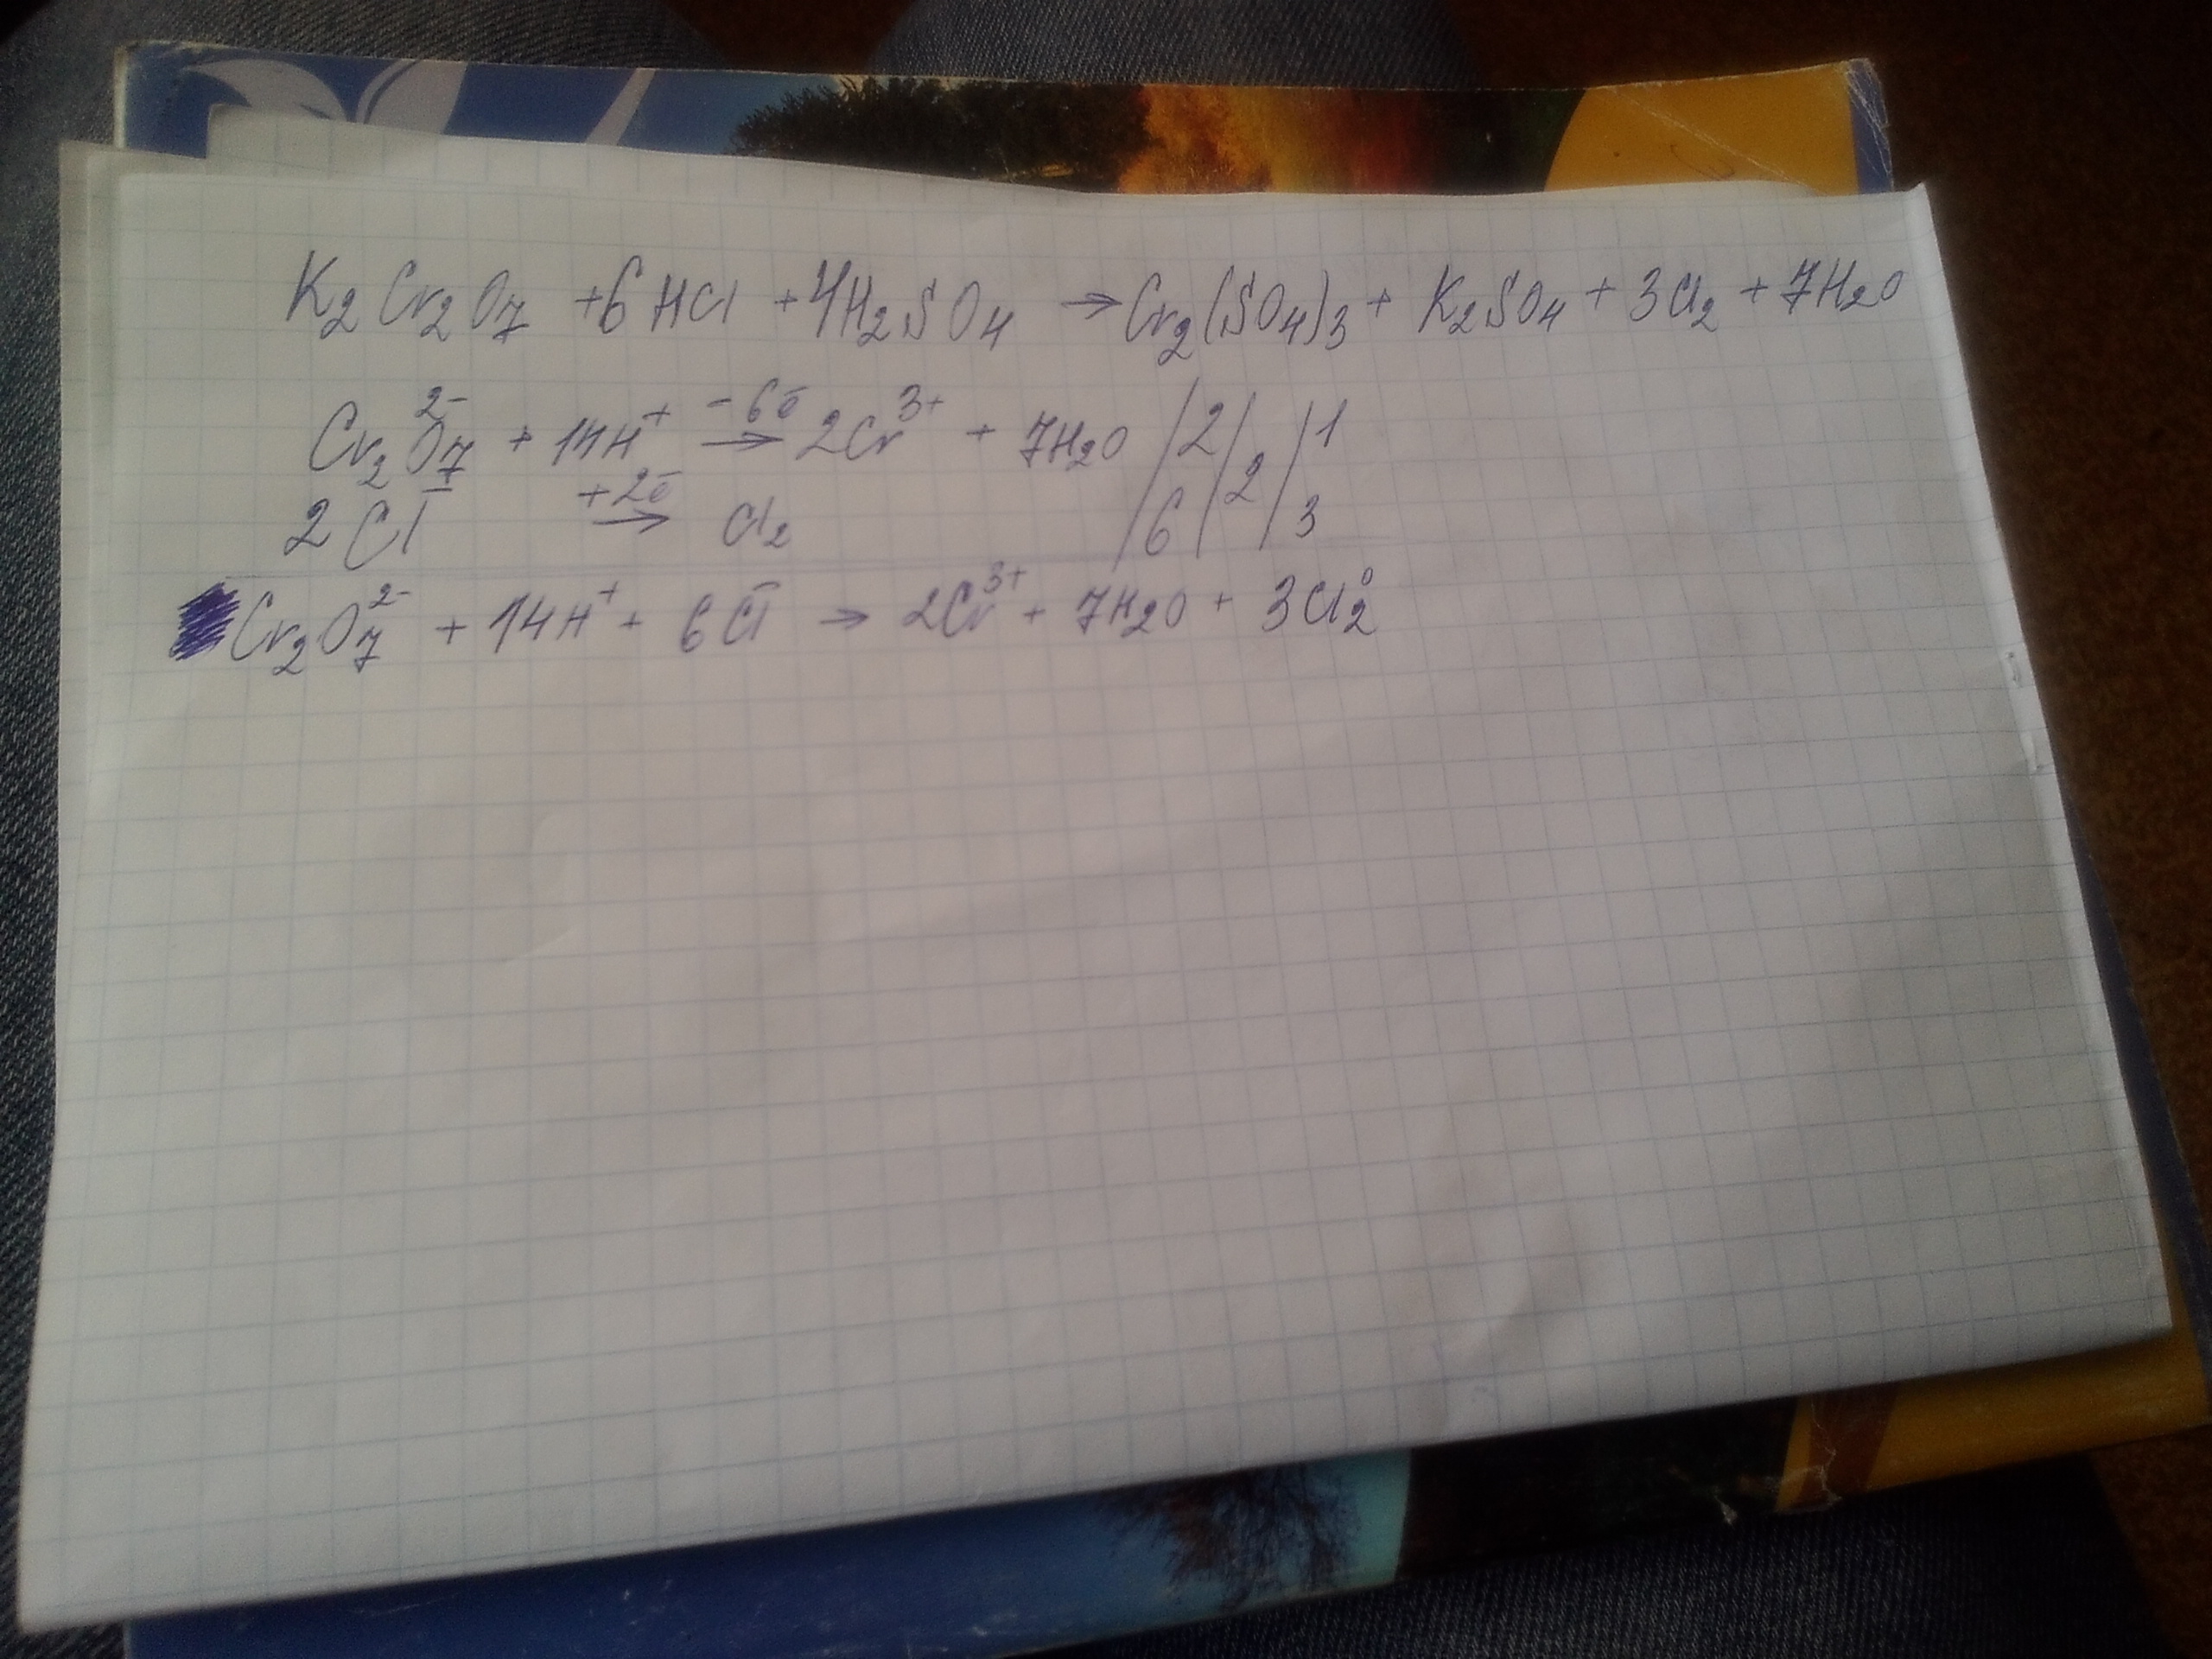 K₂Cr₂O₇ + 6HCl + 4H₂SO₄ → Cr₂(SO₄)₃ + K₂SO₄ + 3Cl₂ + 7H₂O
Cr₂O₇²⁻ + 14H⁺ -6ē → 2Cr³⁺ + 7H₂O / 2 / 2 / 1
2Cl⁻ +2ē → Cl₂ / 6 / / 3
Cr₂O₇²⁻ + 14H⁺ + 6Cl⁻ → 2Cr³⁺ + 7H₂O + 3Cl₂⁰